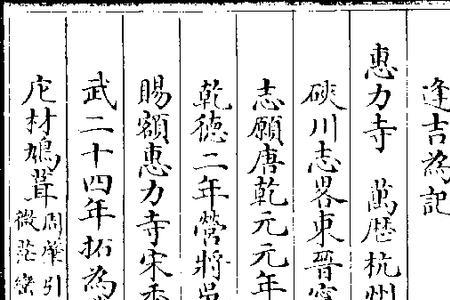 逢吉為記
惠力寺 萬歷杭州
硤川志畧東晉寧
志願唐乾元元年
乾德二年營將吳
賜額惠力寺宋
武二十四年拓為
庀材鳩葺
周肇引
微茫